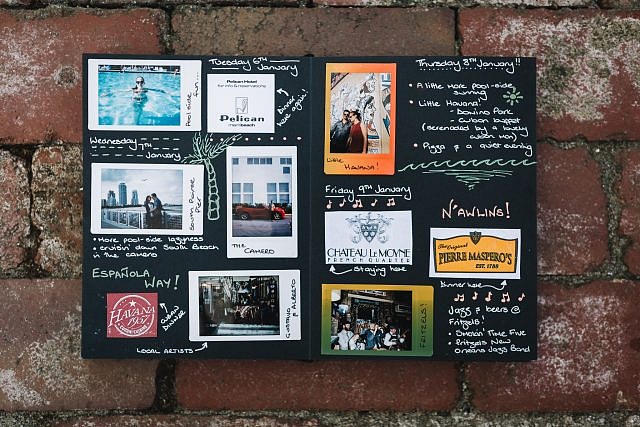 Tuesday 6TH
January
Pool side
fun...
Pelican Hotel
for info & reservations
Pelican
miamibeach
Dinner
here again!
Wednesday 7TH
January
South Pointe
Pier
• More pool-side laziness
• cruisin' down South Beach
in the camero
THE CAMERO
ESPAÑOLA
WAY!
HAVANA
1957
CUBAN
DINNER
GUSTAVO & ALBERTO
LOCAL ARTISTS
Thursday 8TH January!!
• A little more pool-side
sunning
• Little Havana!
- Domino Park
- Cuban buffet
(serenaded by a lovely
cuban man)
• Pizza & a quiet evening
Little HAVANA!
Friday 9TH January
CHATEAU LE MOYNE
FRENCH QUARTER
staying here
N'AWLINS!
The Original
PIERRE MASPERO'S
EST. 1788
Dinner here
FRITZELS!
Jazz & beers @
Fritzels!
• Smokin' Time Five
• Fritzels New
Orleans Jazz Band